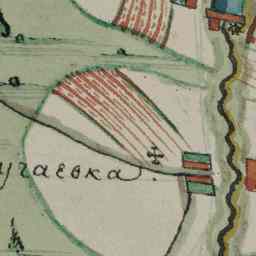 угаевка.